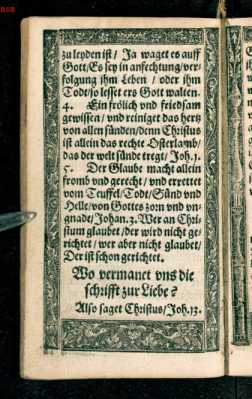 zu leyden ist / Ja waget es auff
Gott / Es sey in anfechtung / ver-
folgung jhm Leben / oder jhm
Todt / so lesset ers Gott walten.
4. Ein frölich vnd friedsam
gewissen / vnd reiniget das hertz
von allen sünden / denn Christus
ist allein das rechte Osterlamb /
das der welt sünde tregt / Joh. 1.
5. Der Glaube macht allein
fromb vnd gerecht / vnd errettet
vom Teuffel / Todt / Sünd vnd
Helle / von Gottes zorn vnd vn-
gnad / Johan. 3. Wer an Chri-
stum glaubet / der wird nicht ge-
richtet / wer aber nicht glaubet /
Der ist schon gerichtet.
Wo vermanet vns die
schrifft zur Liebe?
Also saget Christus / Joh. 13.